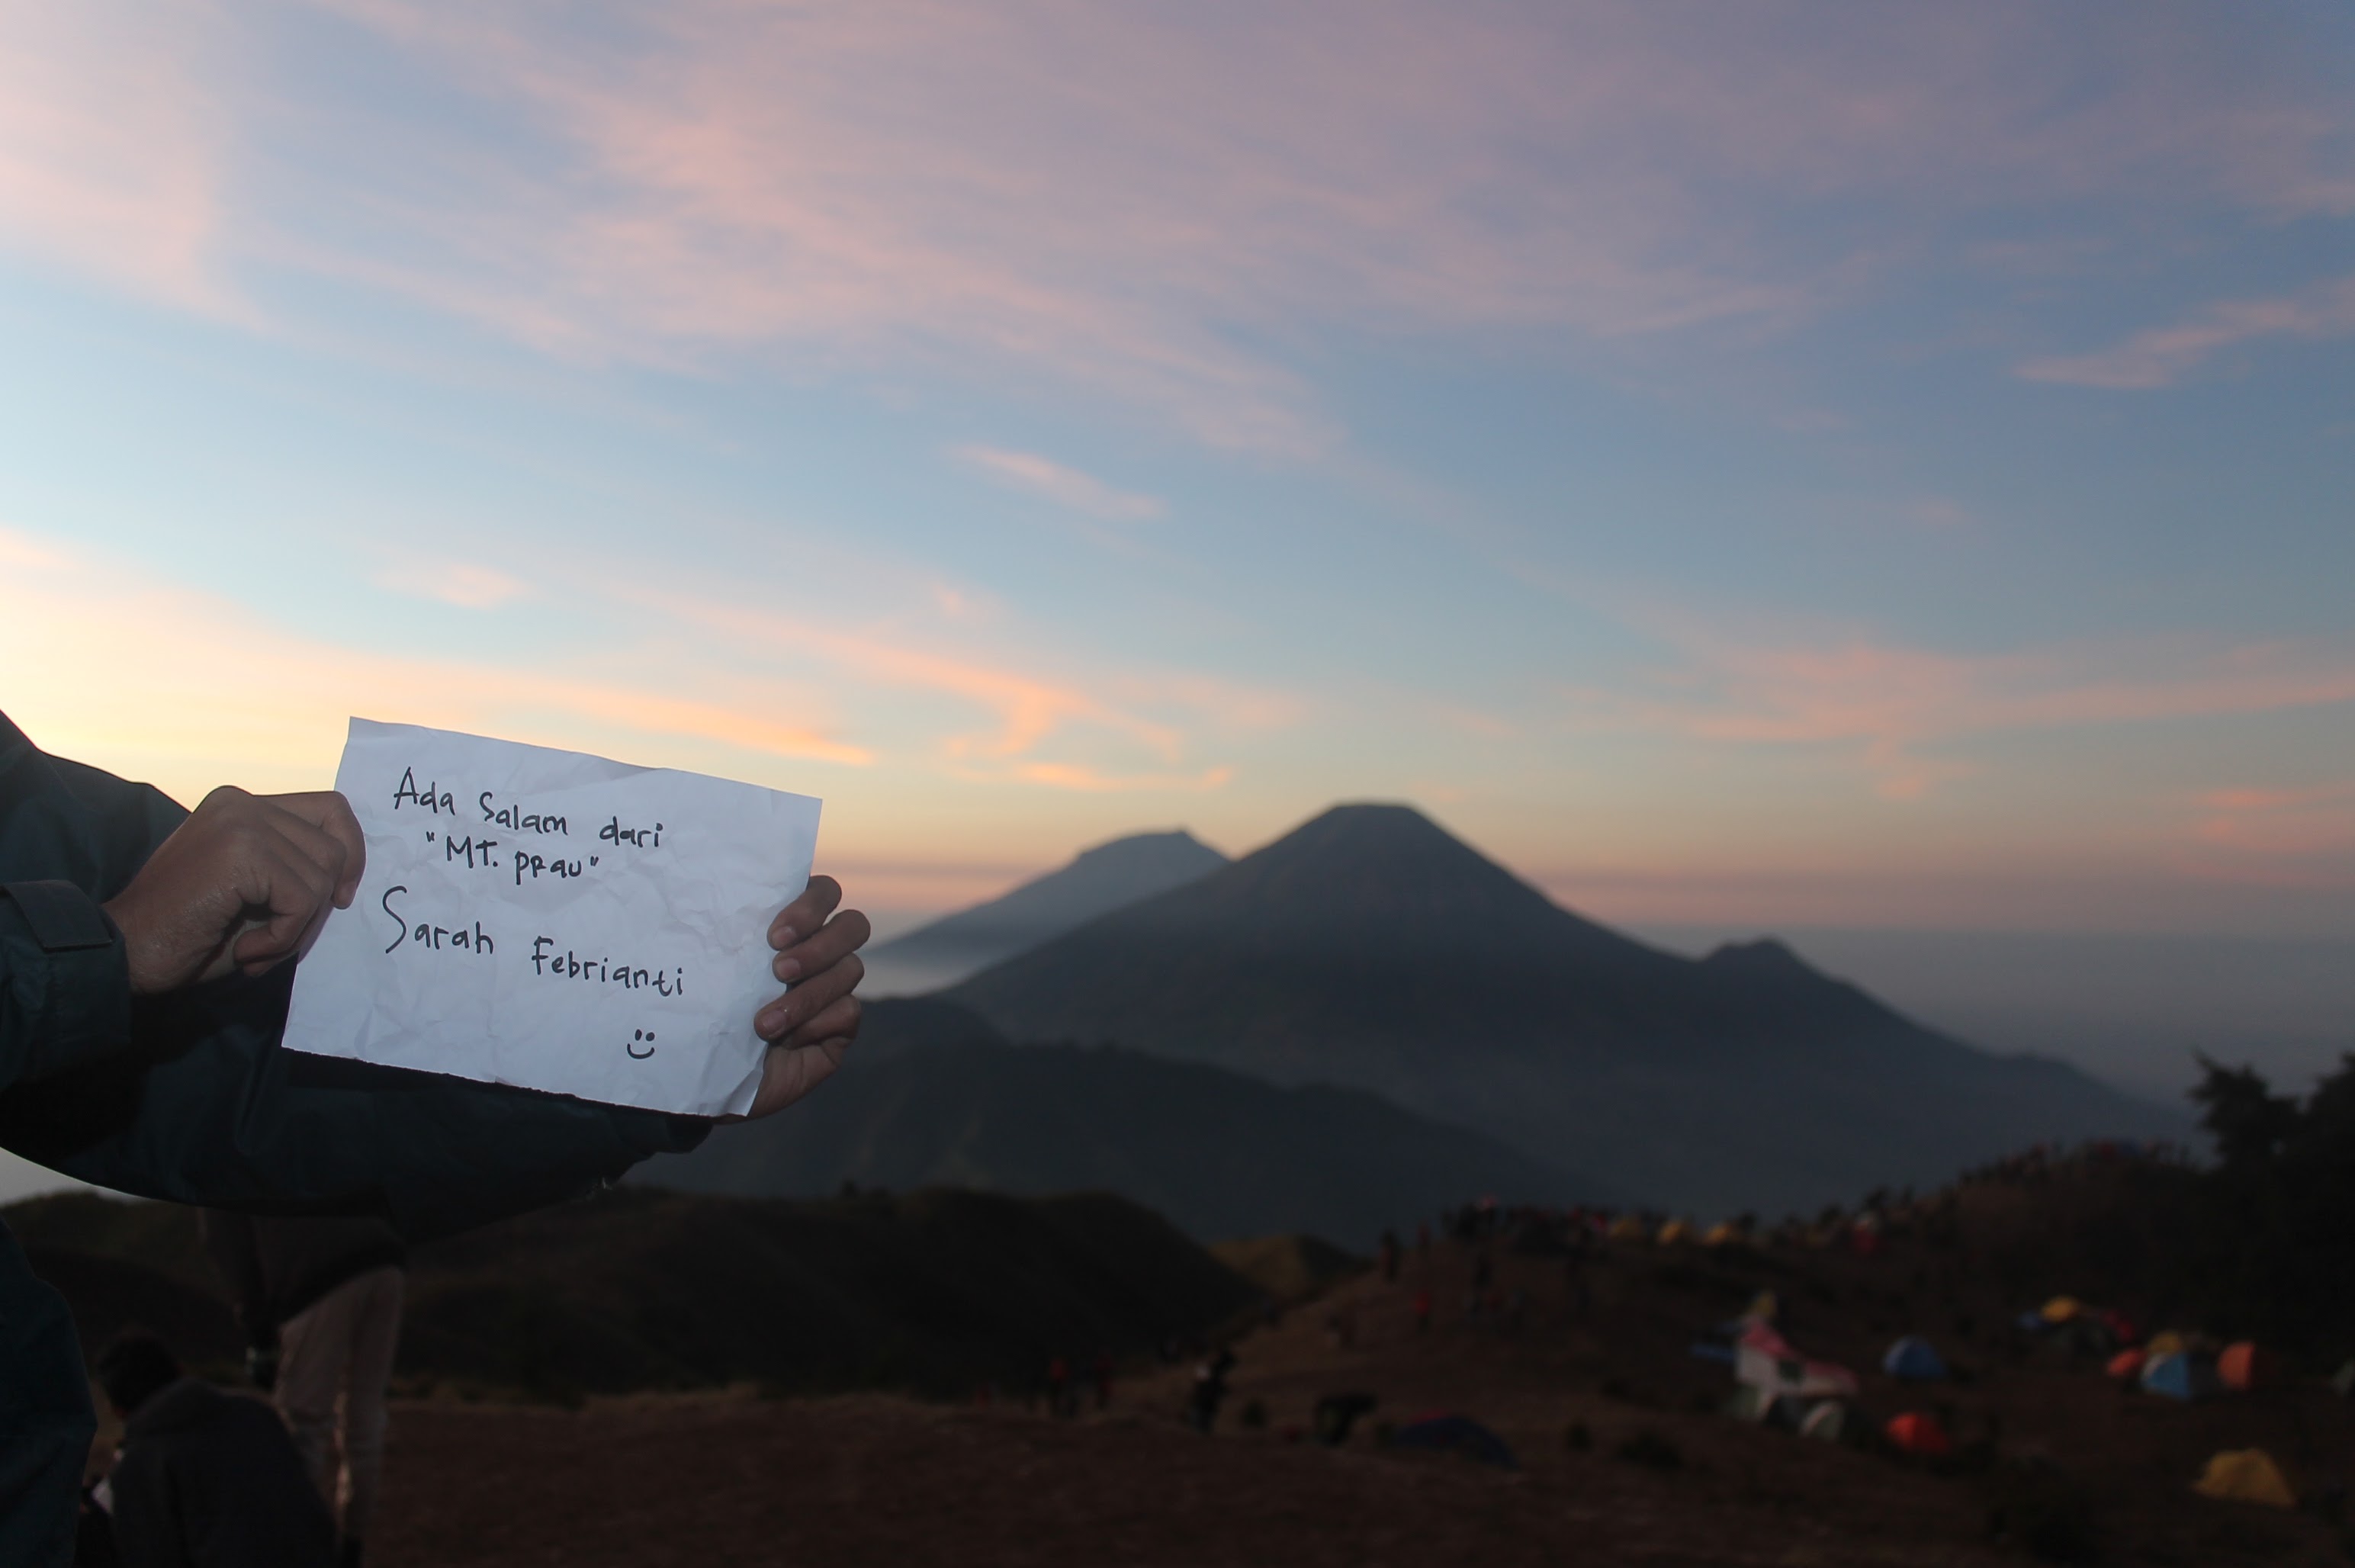 Ada Salam dari
"MT. PRau"
Sarah Febrianti